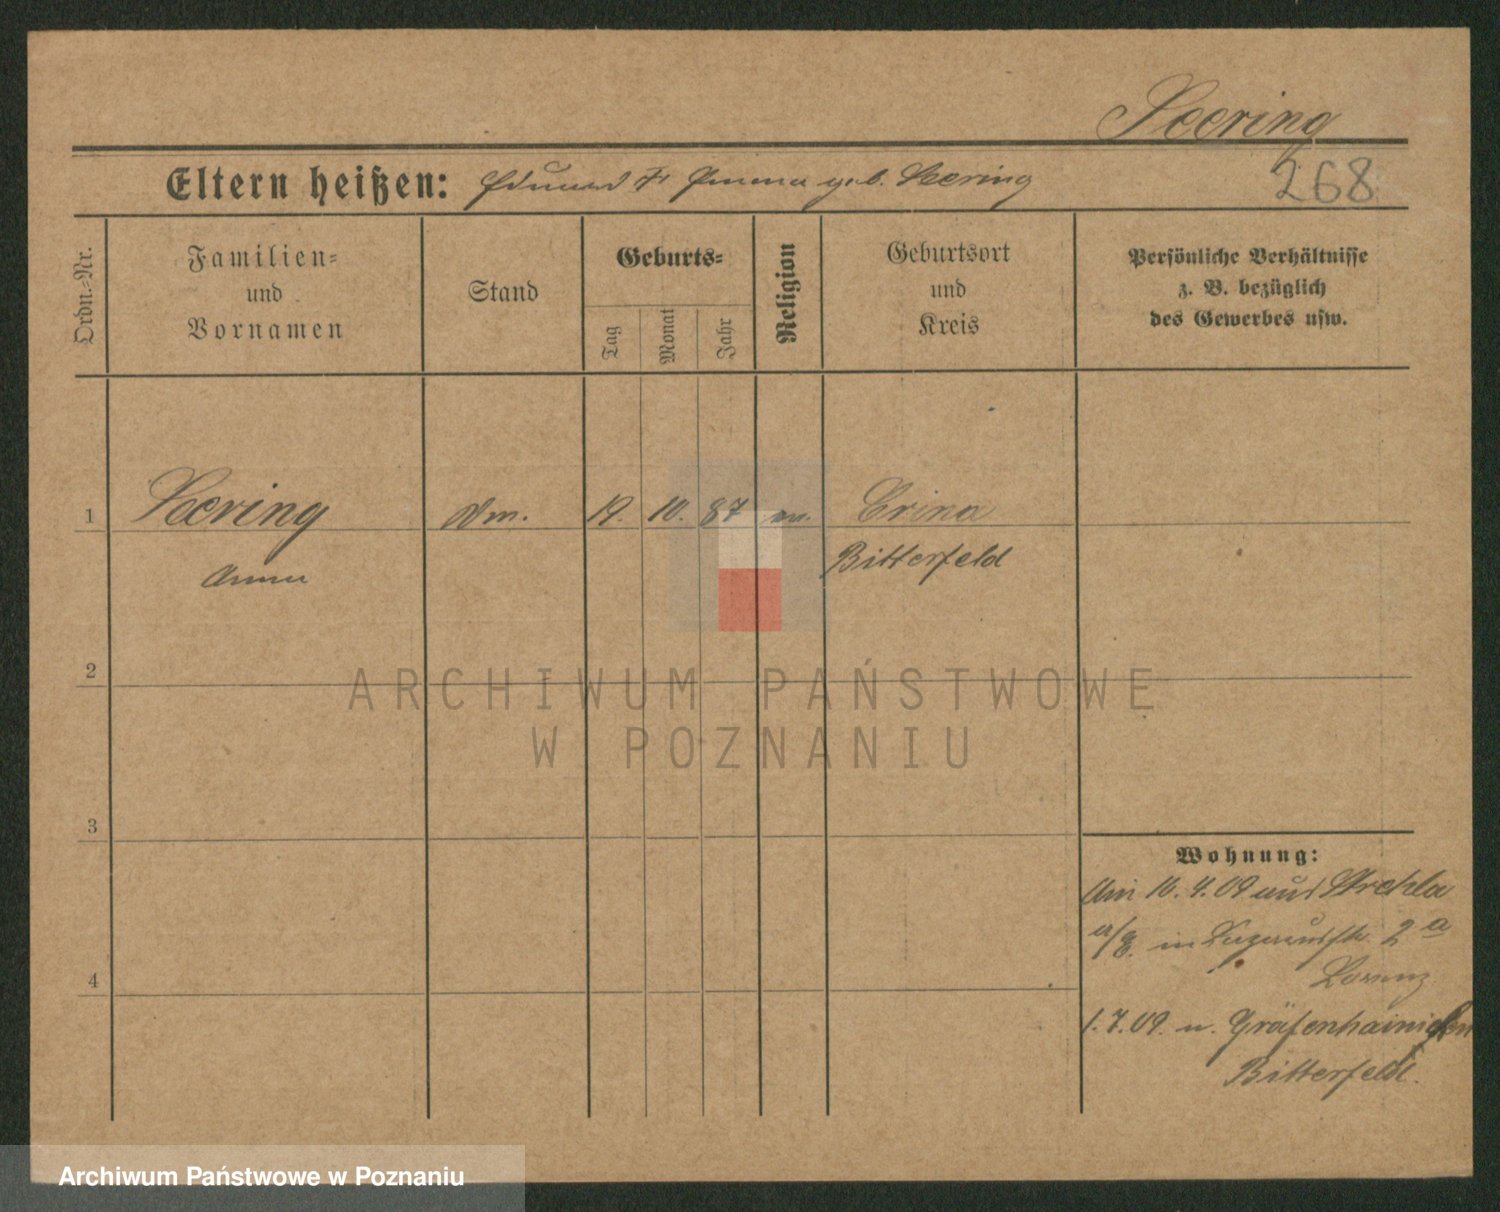 Seering
Eltern heißen: Eduard F Emma geb. Seering
268
Ordn.-Nr.
Familien-
und
Vornamen
Stand
Geburts-
Tag
Monat
Jahr
Religion
Geburtsort
und
Kreis
Persönliche Verhältnisse
z. B. bezüglich
des Gewerbes usw.
1 Seering 19. 10. 87 Crina
Anna Bitterfeld
2
3
4
Wohnung:
Am 16. 4. 09 aus Strehla
a/E. in 2a
Lorenz
1. 7. 09. n. Gräfenhainichen
Bitterfeld.
ARCHIWUM PAŃSTWOWE
W POZNANIU
Archiwum Państwowe w Poznaniu